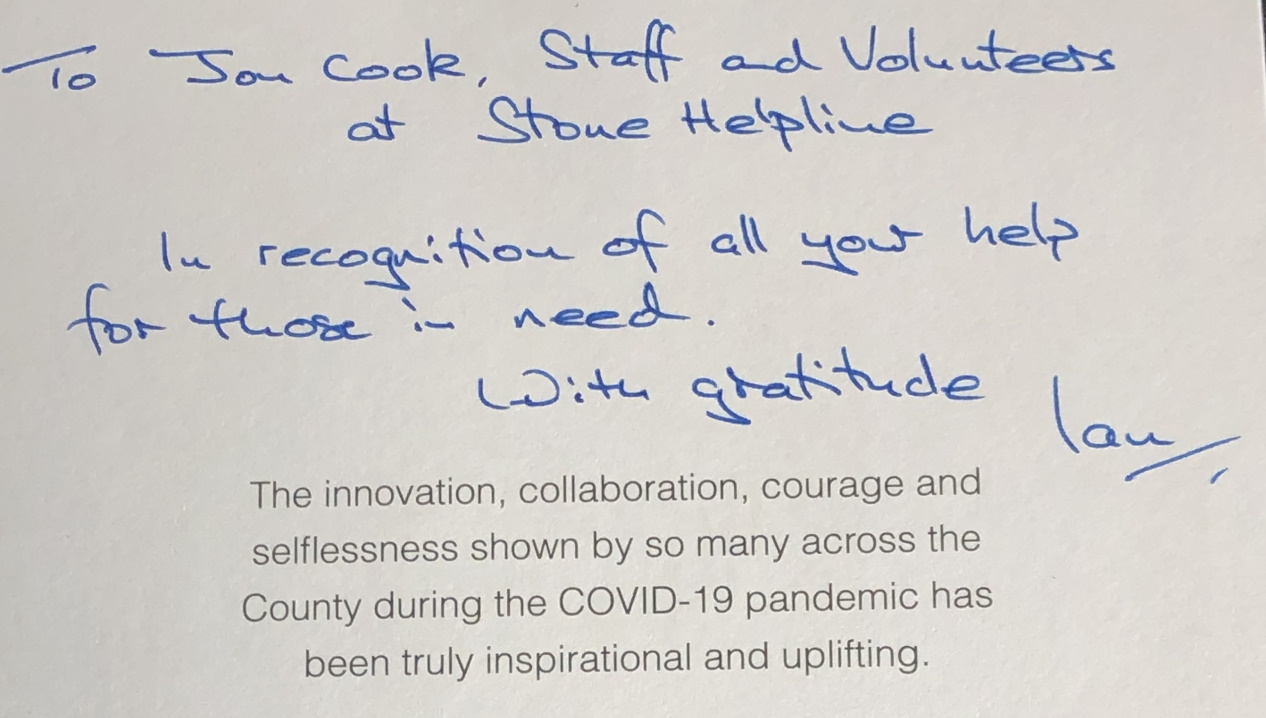 To Jon Cook, Staff and Volunteers
at Stone Helpline
In recognition of all your help
for those in need.
With gratitude
Ian
The innovation, collaboration, courage and
selflessness shown by so many across the
County during the COVID-19 pandemic has
been truly inspirational and uplifting.